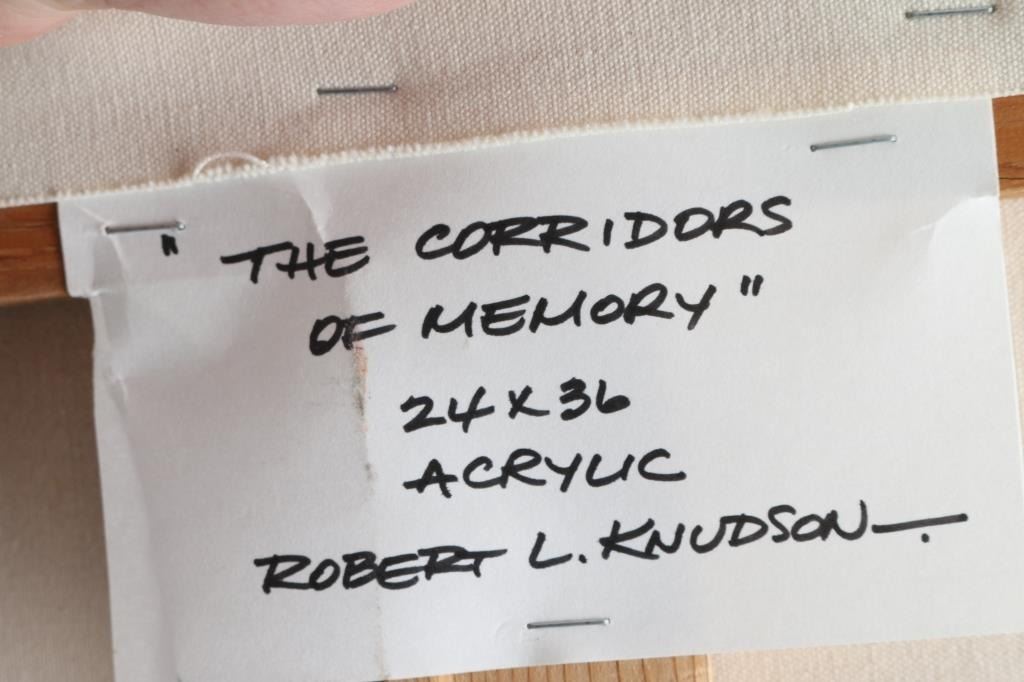 " THE CORRIDORS
OF MEMORY "
24 x 36
ACRYLIC
ROBERT L. KNUDSON